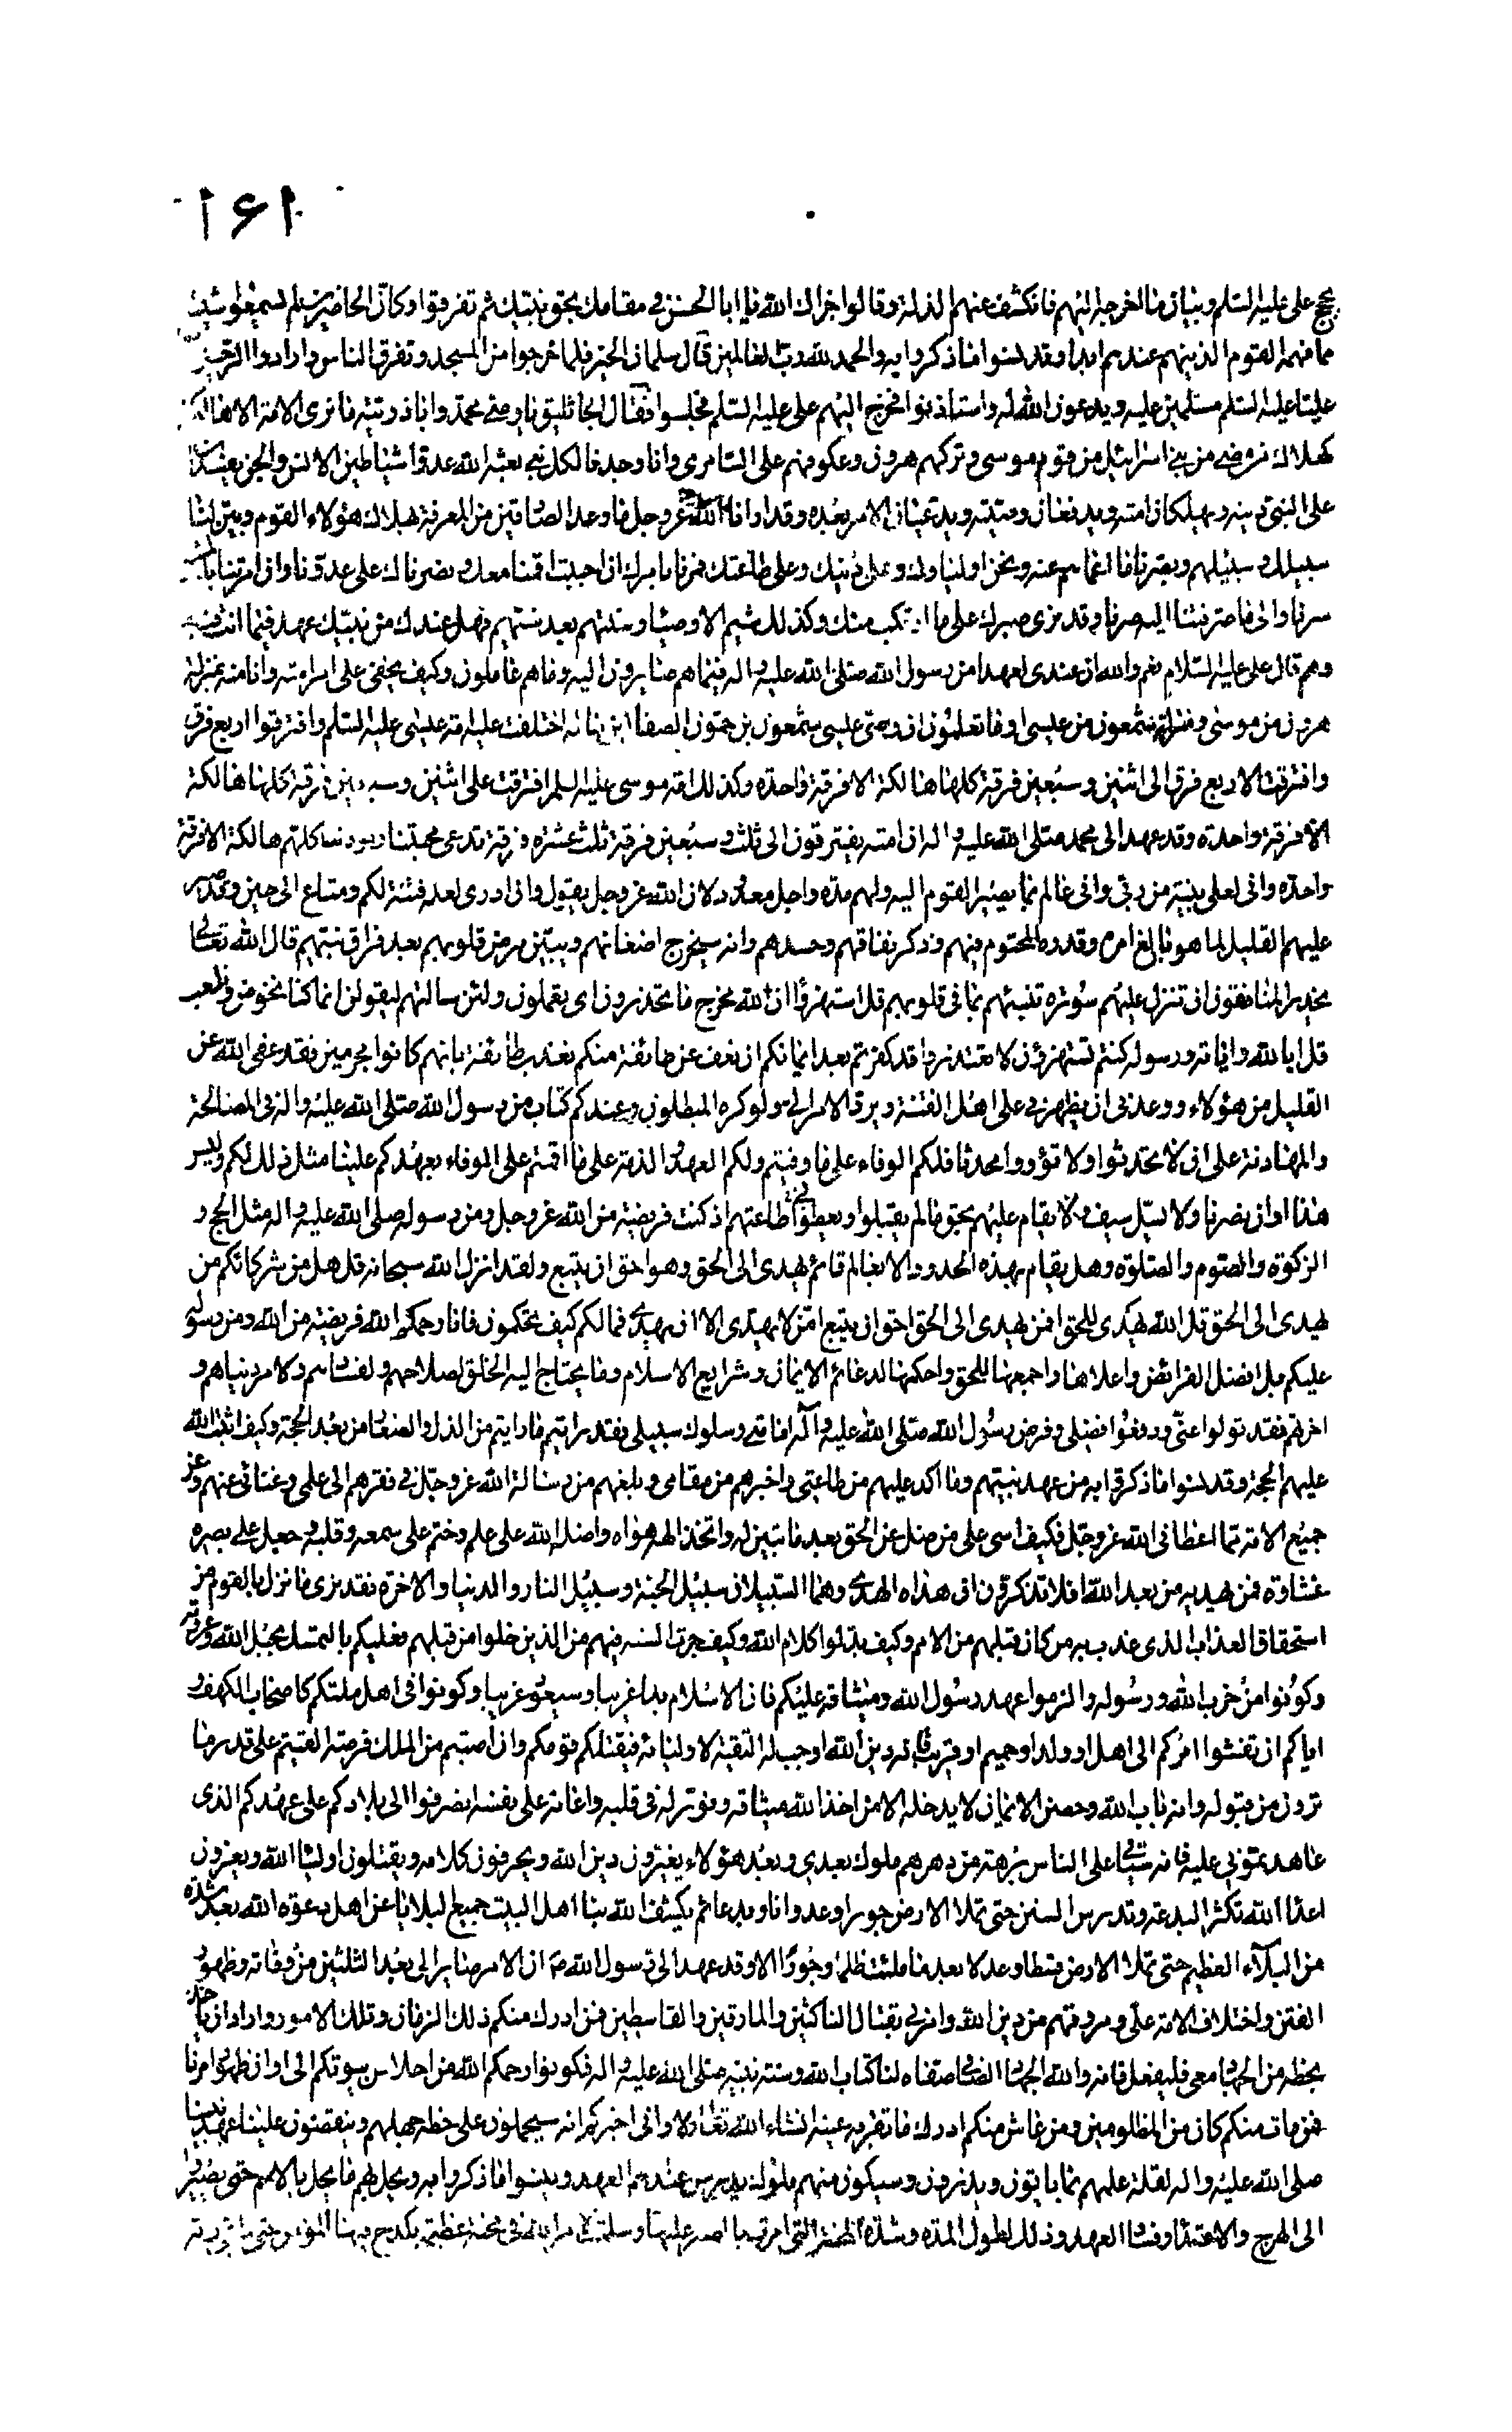 ۱۶۱
بحجج على عليه السلم وبيان ما اخرجه اليهم فانكشف عنهم الذلة وقالوا جزاك الله يا ابا الحسن في مقامك بحق نبيك ثم تفرقوا وكان الحاضرين لم يسمعوا شيئا
مما فهمه القوم الذينهم عندهم ابدا وقد نسوا ما ذكروا به والحمد لله رب العالمين قال سلمان الخير فلما خرجوا من المسجد وتفرق الناس وارادوا الرحيل
عليا عليه السلم مسلمين عليه ويدعون الله له واستاذنوا فخرج اليهم على عليه السلم فجلسوا فقال الجاثليق يا وصي محمد وابا ذريته ما نرى الامة الا هالكة
كهلاك من مضى من بني اسرائيل من قوم موسى وتركهم هرون وعكوفهم على السامرى وانا وجدنا لكل نبي بعثه الله عدوا شياطين الانس والجن يفسدان
على النبى دينه ويهلكان امته ويدفعان وصيته ويدعيان الامر بعده وقد ارانا الله عز وجل ما وعد الصادقين من المعرفة بهلاك هؤلاء القوم وبين لنا
سبيلك وسبيلهم وبصرنا ما اعماهم عنه ونحن اولياوك وعلى دينك وعلى طاعتك فمرنا بامرك ان احببت اقمنا معك ونصرناك على عدوك وان امرتنا بالمسير
سرنا والى ما صرفتنا اليه صرنا وقد نرى صبرك على ما ارتكب منك وكذلك شيم الاوصياء وسنتهم بعد نبيهم فهل عندك من نبيك عهد فيما انت فيه
وهم قال على عليه السلام نعم والله ان عندى لعهدا من رسول الله صلى الله عليه واله فيما هم صايرون اليه وما هم عاملون وكيف يخفى على امر امته وانا منه بمنزلة
هرون من موسى وبمنزلة شمعون من عيسى اوما تعلمون ان وصى عيسى شمعون بن حمون الصفا ابن خاله اختلفت عليه امة عيسى عليه السلم وافترقوا اربع فرق
وافترقت الاربع فرق الى اثنين وسبعين فرقة كلها هالكة الا فرقة واحدة وكذلك امة موسى عليه السلم افترقت على اثنين وسبعين فرقة كلها هالكة
الا فرقة واحدة وقد عهد الى محمد صلى الله عليه واله ان امته يفترقون الى ثلث وسبعين فرقة ثلث عشرة فرقة تدعى محبتنا ومودتنا كلهم هالكة الا فرقة
واحدة وانى لعلى بينة من ربى وانى عالم بما يصير القوم اليه ولهم مدة واجل معدود لان الله عز وجل يقول وان ادرى لعله فتنة لكم ومتاع الى حين وقد صبر
عليهم القليل لما هو بالغ امره وقدره المحتوم فيهم وذكر نفاقهم وحسدهم وانه سيخرج اضغانهم ويبين مرض قلوبهم بعد فراق نبيهم قال الله تعالى
يحذر المنافقون ان تنزل عليهم سورة تنبئهم بما في قلوبهم قل استهزؤا ان الله مخرج ما تحذرون اى تعملون ولئن سالتهم ليقولن انما كنا نخوض ونلعب
قل ابالله واياته ورسوله كنتم تستهزؤن لا تعتذروا قد كفرتم بعد ايمانكم ان نعف عن طائفة منكم نعذب طائفة بانهم كانوا مجرمين فقد عفى الله عن
القليل من هؤلاء ووعدنى ان يظهرنى على اهل الفتنة ويرد الامر الى ولو كره المبطلون وعندكم كتاب من رسول الله صلى الله عليه واله في المصالحة
والمهادنة على ان لا تحدثوا ولا تؤووا محدثا فلكم الوفاء على ما وفيتم ولكم العهد والذمة على ما اقمتم على الوفاء بعهدكم علينا مثل ذلك لكم وليس
هذا اوان نصرنا ولا يسل سيف ولا يقام عليهم بحق ما لم يقبلوا ويعطوني طاعتهم اذ كنت فريضة من الله عز وجل ومن رسوله صلى الله عليه واله مثل الحج و
الزكوة والصوم والصلوة وهل يقام بهذه الحدود الا بعالم قائم يهدى الى الحق وهو احق ان يتبع ولقد انزل الله سبحانه قل هل من شركائكم من
يهدى الى الحق قل الله يهدى للحق افمن يهدى الى الحق احق ان يتبع امن لا يهدى الا ان يهدى فمالكم كيف تحكمون فانا رحمكم الله فريضة من الله ومن رسوله
عليكم بل افضل الفرائض واعلاها واجمعها للحق واحكمها لدعائم الايمان وشرايع الاسلام وما يحتاج اليه الخلق لصلاحهم ولفسادهم ولامر دنياهم و
اخرتهم فقد تولوا عنى ودفعوا فضلى وفرض رسول الله صلى الله عليه واله امامتى وسلوك سبيلى فقد رايتم ما رايتم من الذل والصغار من بعد الحجة وكيف اثبت الله
عليهم الحجة وقد نسوا ما ذكروا به من عهد نبيهم وما اكد عليهم من طاعتى واخبرهم من مقامى وبلغهم من رسالة الله عز وجل في فقرهم الى علمى وغنائى عنهم وعن
جميع الامة مما اعطانى الله عز وجل فكيف اسى على من ضل عن الحق بعد ما تبين له واتخذ الهه هواه واضله الله على علم وختم على سمعه وقلبه وجعل على بصره
غشاوة فمن يهديه من بعد الله افلا تذكرون ان هداه الهدى وهما السبيلان سبيل الجنة وسبيل النار والدنيا والاخرة فقد نرى ما نزل بالقوم من
استحقاق العذاب الذى عذب به من كان قبلهم من الامم وكيف بدلوا كلام الله وكيف جرت السنة فيهم من الذين خلوا من قبلهم فعليكم بالتمسك بحبل الله وعروته
وكونوا من حزب الله ورسوله والزموا عهد رسول الله وميثاقه عليكم فان الاسلام بدا غريبا وسيعود غريبا وكونوا في اهل ملتكم كاصحاب الكهف و
اياكم ان تفشوا امركم الى اهل او ولد او حميم او قريب فانه دين الله اوجب له التقية لاوليائه فيقتلكم قومكم وان اصبتم من الملك فرصة القيتم على قدر ما
ترون من قبوله وانه باب الله وحصن الايمان لا يدخله الا من اخذ الله ميثاقه ونور له في قلبه واعانه على نفسه انصرفوا الى بلادكم على عهدكم الذى
عاهدتمونى عليه فانه سياتي على الناس برهة من دهرهم ملوك بعدي وبعد هؤلاء يغيرون دين الله ويحرفون كلامه ويقتلون اولياء الله ويعزون
اعداء الله تكثر البدعة وتدرس السنن حتى تملا الارض جورا وعدوانا وبدعا ثم يكشف الله بنا اهل البيت جميع البلايا عن اهل دعوة الله بعد شدة
من البلاء العظيم حتى تملا الارض قسطا وعدلا بعد ما ملئت ظلما وجورا الا وقد عهد الى رسول الله ص ان الامر صاير الى بعد الثلثين من وفاته وظهور
الفتن واختلاف الامة على ومروقهم من دين الله وامرنى بقتال الناكثين والمارقين والقاسطين فمن ادرك منكم ذلك الزمان وتلك الامور واراد ان ياخذ
بحظه من الجهاد معى فليفعل فانه والله الجهاد الصافى صفاه لنا كتاب الله وسنة نبيه صلى الله عليه واله فكونوا رحمكم الله من احلاس بيوتكم الى اوان ظهور امرنا
فمن مات منكم كان من المظلومين ومن عاش منكم ادرك ما تقر به عينه انشاء الله تعالى الا وانى اخبركم انه سيحملون على خطة جهلهم وينقضون علينا عهد نبينا
صلى الله عليه واله لقلة علمهم بما ياتون ويذرون وسيكون منهم ملوك يدرس عندهم العهد وينسوا ما ذكروا به ويحل بهم ما يحل بالامم حتى يصيروا
الى الهرج والاعتداء وفساد العهد وذلك لطول المدة وشدة المحنة التى امرت بالصبر عليها وسلمت لامر الله في محنة عظيمة يكدح فيها المؤمن حتى يلقى ربه